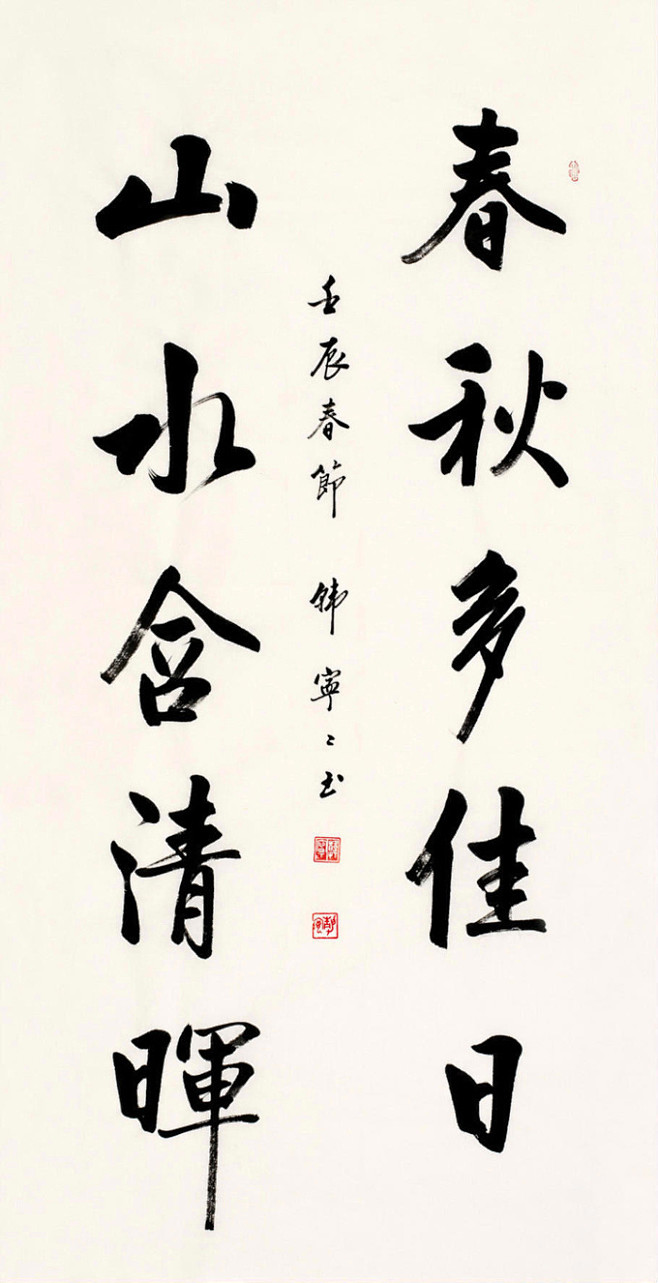 春秋多佳日
山水含清暉
壬辰春節 韩寧寧书